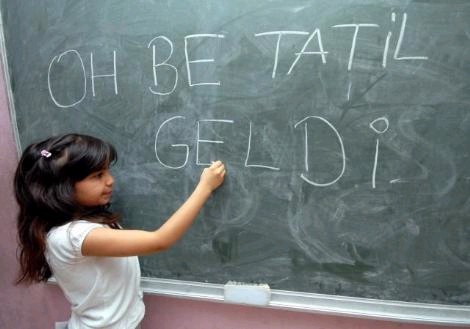 OH BE TATİL
GELDİ